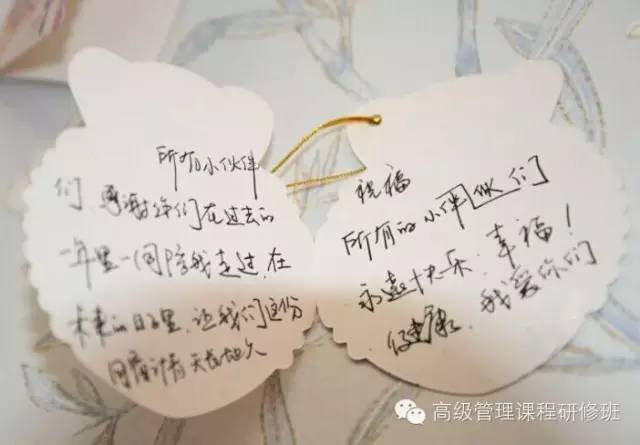 所有小伙伴
们,感谢你们在过去的
一年里一同陪我走过,在
未来的日子里,让我们这份
同窗情天长地久
祝福
所有的小伴伙们
永远快乐,幸福!
健康,我爱你们
高级管理课程研修班